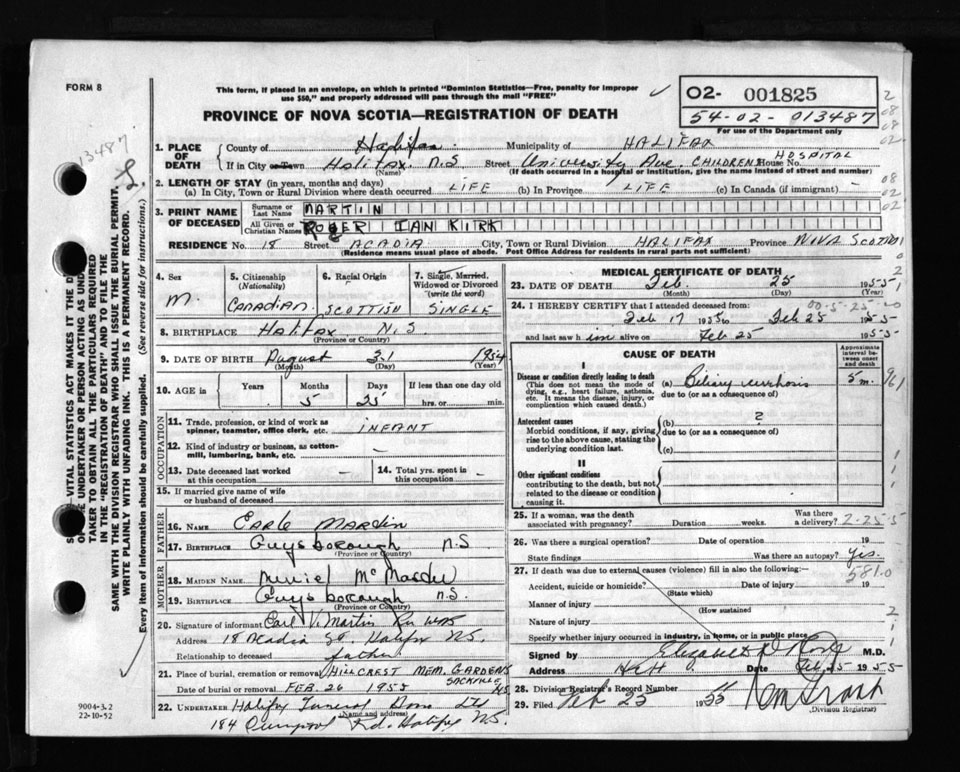 FORM 8
This form, if placed in an envelope, on which is printed "Dominion Statistics—Free, penalty for improper
use $50," and properly addressed will pass through the mail "FREE"
PROVINCE OF NOVA SCOTIA—REGISTRATION OF DEATH
02- 001825
54-02-013487
For use of the Department only
13487
1. PLACE OF DEATH
County of Halifax Municipality of HALIFAX
If in City or Town Halifax N.S. Street University Ave. CHILDREN House No. HOSPITAL
(Name) (If death occurred in a hospital or institution, give the name instead of street and number)
2. LENGTH OF STAY (in years, months and days)
(a) In City, Town or Rural Division where death occurred LIFE (b) In Province LIFE (c) In Canada (if immigrant) -
3. PRINT NAME OF DECEASED
Surname or Last Name MARTIN
All Given or Christian Names ROGER IAN KIRK
RESIDENCE No. 18 Street ACADIA City, Town or Rural Division HALIFAX Province NOVA SCOTIA
(Residence means usual place of abode. Post Office Address for residents in rural parts not sufficient)
4. Sex M.
5. Citizenship (Nationality) Canadian
6. Racial Origin SCOTTISH
7. Single, Married, Widowed or Divorced (write the word) SINGLE
8. BIRTHPLACE Halifax N.S.
(Province or Country)
9. DATE OF BIRTH August 31 1954
(Month) (Day) (Year)
10. AGE in Years Months 5 Days 25 If less than one day old
hrs. or min.
OCCUPATION
11. Trade, profession, or kind of work as
spinner, teamster, office clerk, etc. INFANT
12. Kind of industry or business, as cotton-
mill, lumbering, bank, etc. -
13. Date deceased last worked
at this occupation -
14. Total yrs. spent in
this occupation -
15. If married give name of wife
or husband of deceased
FATHER
16. NAME Earle Martin
17. BIRTHPLACE Guysborough N.S.
(Province or Country)
MOTHER
18. MAIDEN NAME Muriel
19. BIRTHPLACE Guysborough N.S.
(Province or Country)
20. Signature of informant Earl V. Martin
Address 18 Acadia St. Halifax N.S.
Relationship to deceased father
21. Place of burial, cremation or removal HILLCREST MEM. GARDENS
SACKVILLE NS
Date of burial or removal FEB. 26 1955
22. UNDERTAKER Halifax Funeral Home Ltd
(Name and address)
184 Rd. Halifax N.S.
MEDICAL CERTIFICATE OF DEATH
23. DATE OF DEATH Feb. 25 1955
(Month) (Day) (Year)
24. I HEREBY CERTIFY that I attended deceased from:
Feb 17 1955 to Feb 25 1955
and last saw him alive on Feb 25 1955
CAUSE OF DEATH
Approximate interval between onset and death
I
Disease or condition directly leading to death
(This does not mean the mode of
dying, e.g. heart failure, asthenia,
etc. It means the disease, injury, or
complication which caused death.)
(a) Biliary cirrhosis 5 m.
due to (or as a consequence of)
Antecedent causes
Morbid conditions, if any, giving
rise to the above cause, stating the
underlying condition last.
(b) ?
due to (or as a consequence of)
(c)
II
Other significant conditions
contributing to the death, but not
related to the disease or condition
causing it.
25. If a woman, was the death
associated with pregnancy? Duration weeks. Was there a delivery?
2-25-5
26. Was there a surgical operation? Date of operation 19
State findings Was there an autopsy? Yes.
581.0
27. If death was due to external causes (violence) fill in also the following:-
Accident, suicide or homicide? Date of injury 19
(State which)
Manner of injury
(How sustained
Nature of injury
Specify whether injury occurred in industry, in home, or in public place
Signed by M.D.
Address Date Feb. 25 1955
28. Division Registrar's Record Number
29. Filed Feb 25 1955
(Division Registrar)
9004-3.2
22-10-52
VITAL STATISTICS ACT MAKES IT THE
UNDERTAKER OR PERSON ACTING AS
TAKER TO OBTAIN ALL THE PARTICULARS REQUIRED
IN THE "REGISTRATION OF DEATH" AND TO FILE THE
SAME WITH THE DIVISION REGISTRAR WHO SHALL ISSUE THE BURIAL PERMIT.
WRITE PLAINLY WITH UNFADING INK. THIS IS A PERMANENT RECORD.
Every item of information should be carefully supplied. (See reverse side for instructions.)